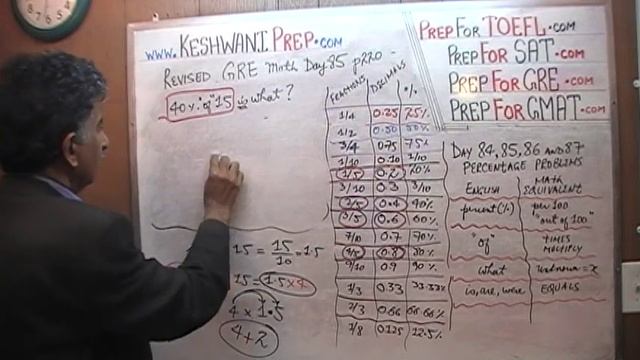 www.KeshwaniPrep.com
Revised GRE Math Day 85 p220
40% "of" 15 is what?
15 = 15/10 = 1.5
15 = 1.5 x 4
4 x 1.5
4 + 2
PrepForTOEFL.com
PrepForSAT.com
PrepForGRE.com
PrepForGMAT.com
FRACTIONS DECIMALS %
1/4 0.25 25%
1/2 0.50 50%
3/4 0.75 75%
1/10 0.10 1/10
1/5 0.2 20%
3/10 0.3 3/10
2/5 0.4 40%
3/5 0.6 60%
7/10 0.7 70%
4/5 0.8 80%
9/10 0.9 90%
1/3 0.33 33.33%
2/3 0.66 66.66%
7/8 0.125 12.5%
Day 84, 85, 86 and 87
Percentage Problems
English Math Equivalent
percent (%) per 100
"out of 100"
"of" Times
Multiply
what unknown = x
is, are, were Equals